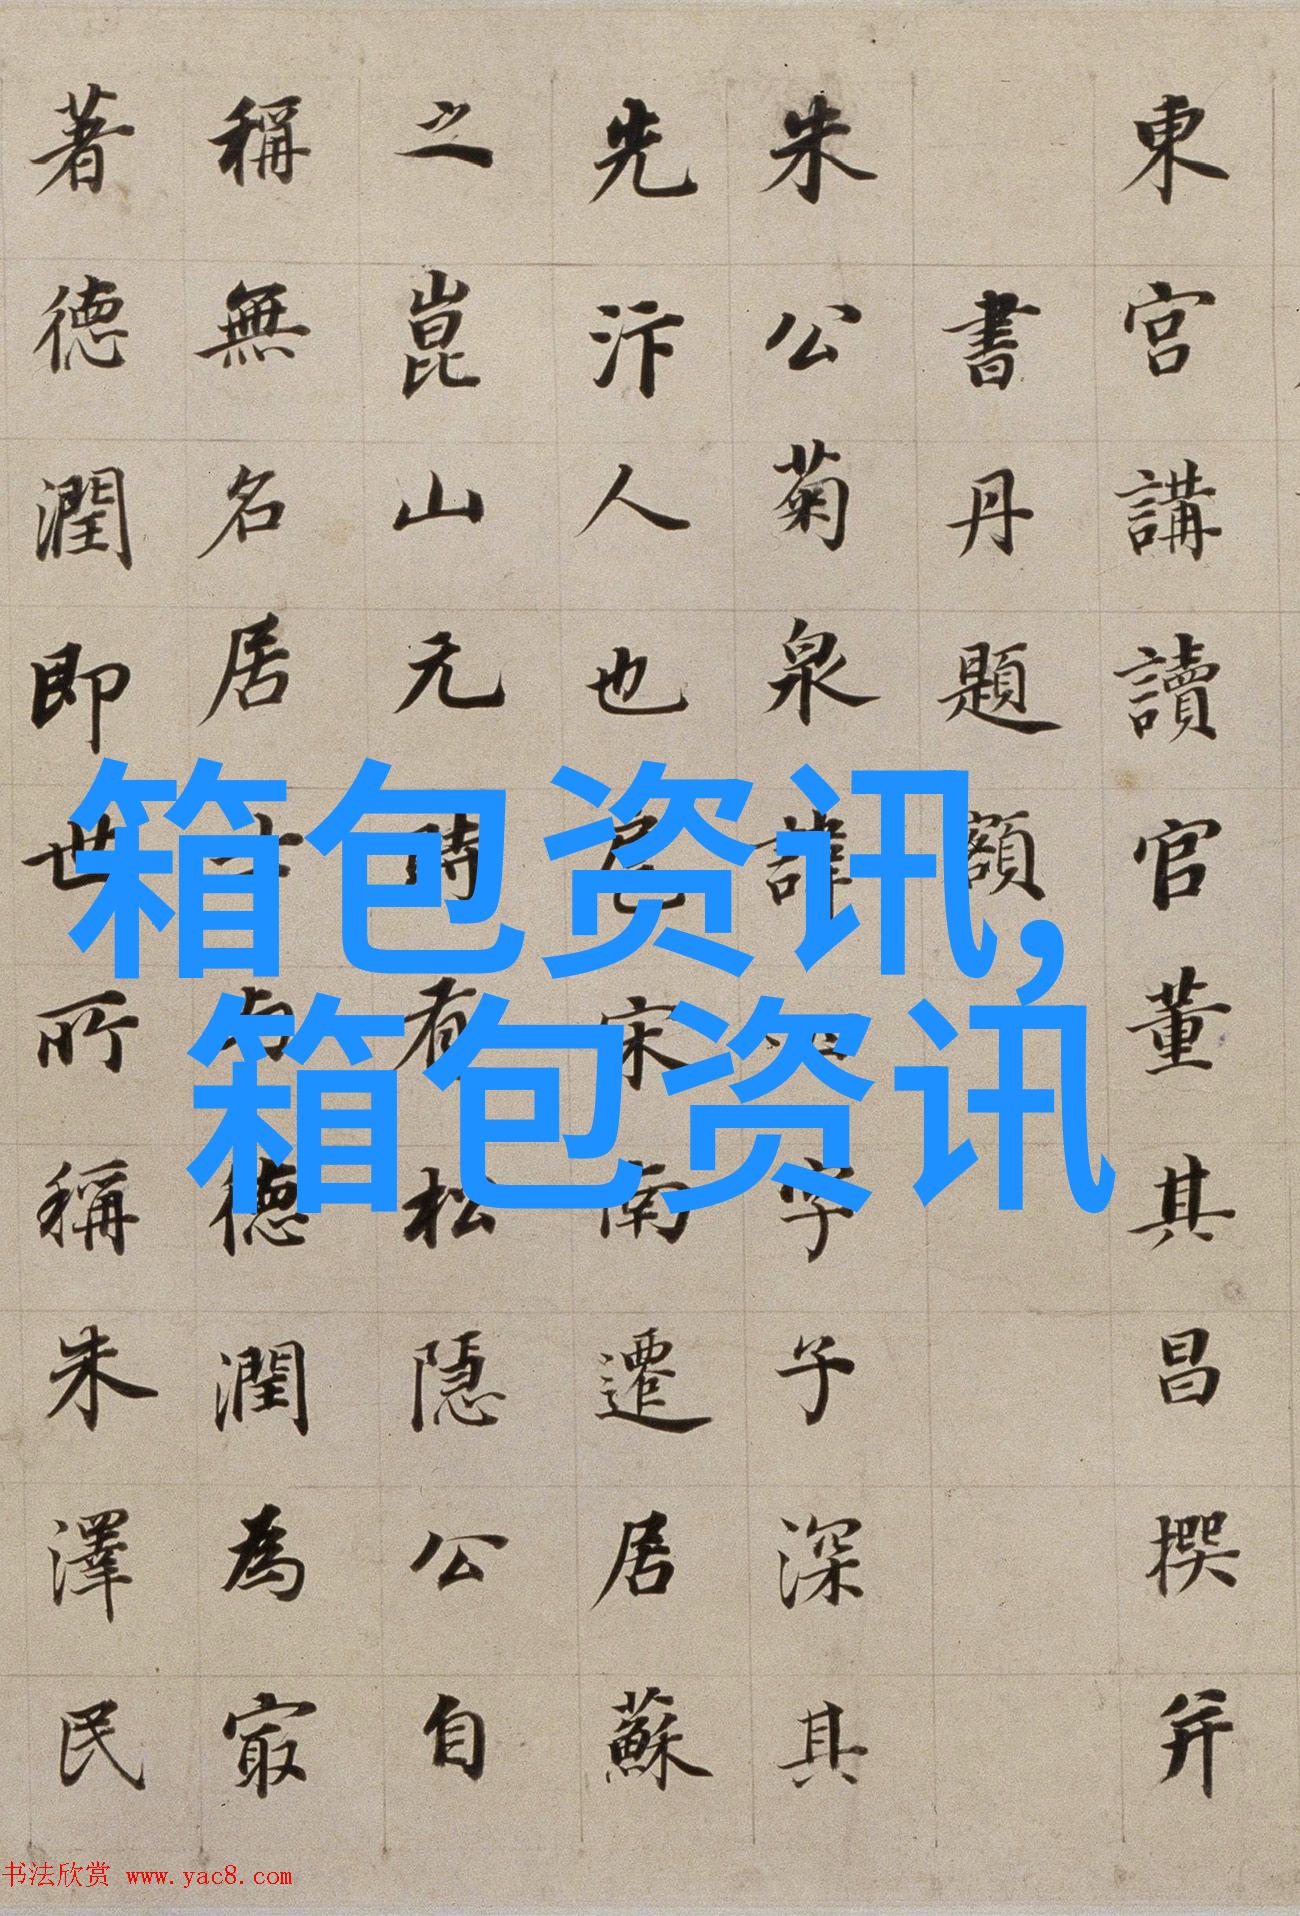 東宮講讀官董其昌撰并
書丹題額
朱公菊泉諱字子深其
先汴人也扈宋南遷居蘇
之崑山元時有松隱公自
稱無名居士德潤為最
著德潤即世所稱朱澤民
箱包资讯,
箱包资讯
书法欣赏 www.yac8.com